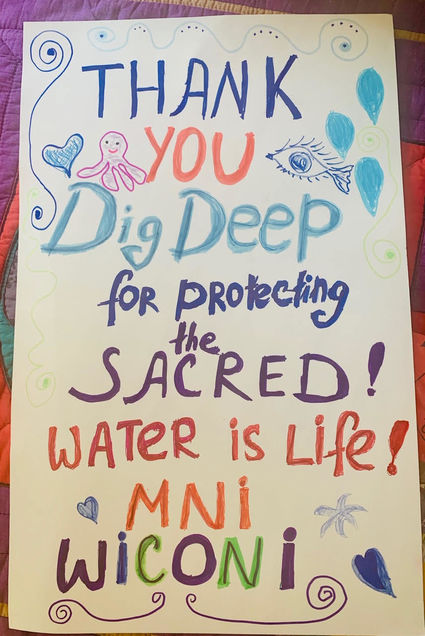 THANK
YOU
Dig Deep
for protecting
the
SACRED!
WATER is Life!
MNi
WiCONi